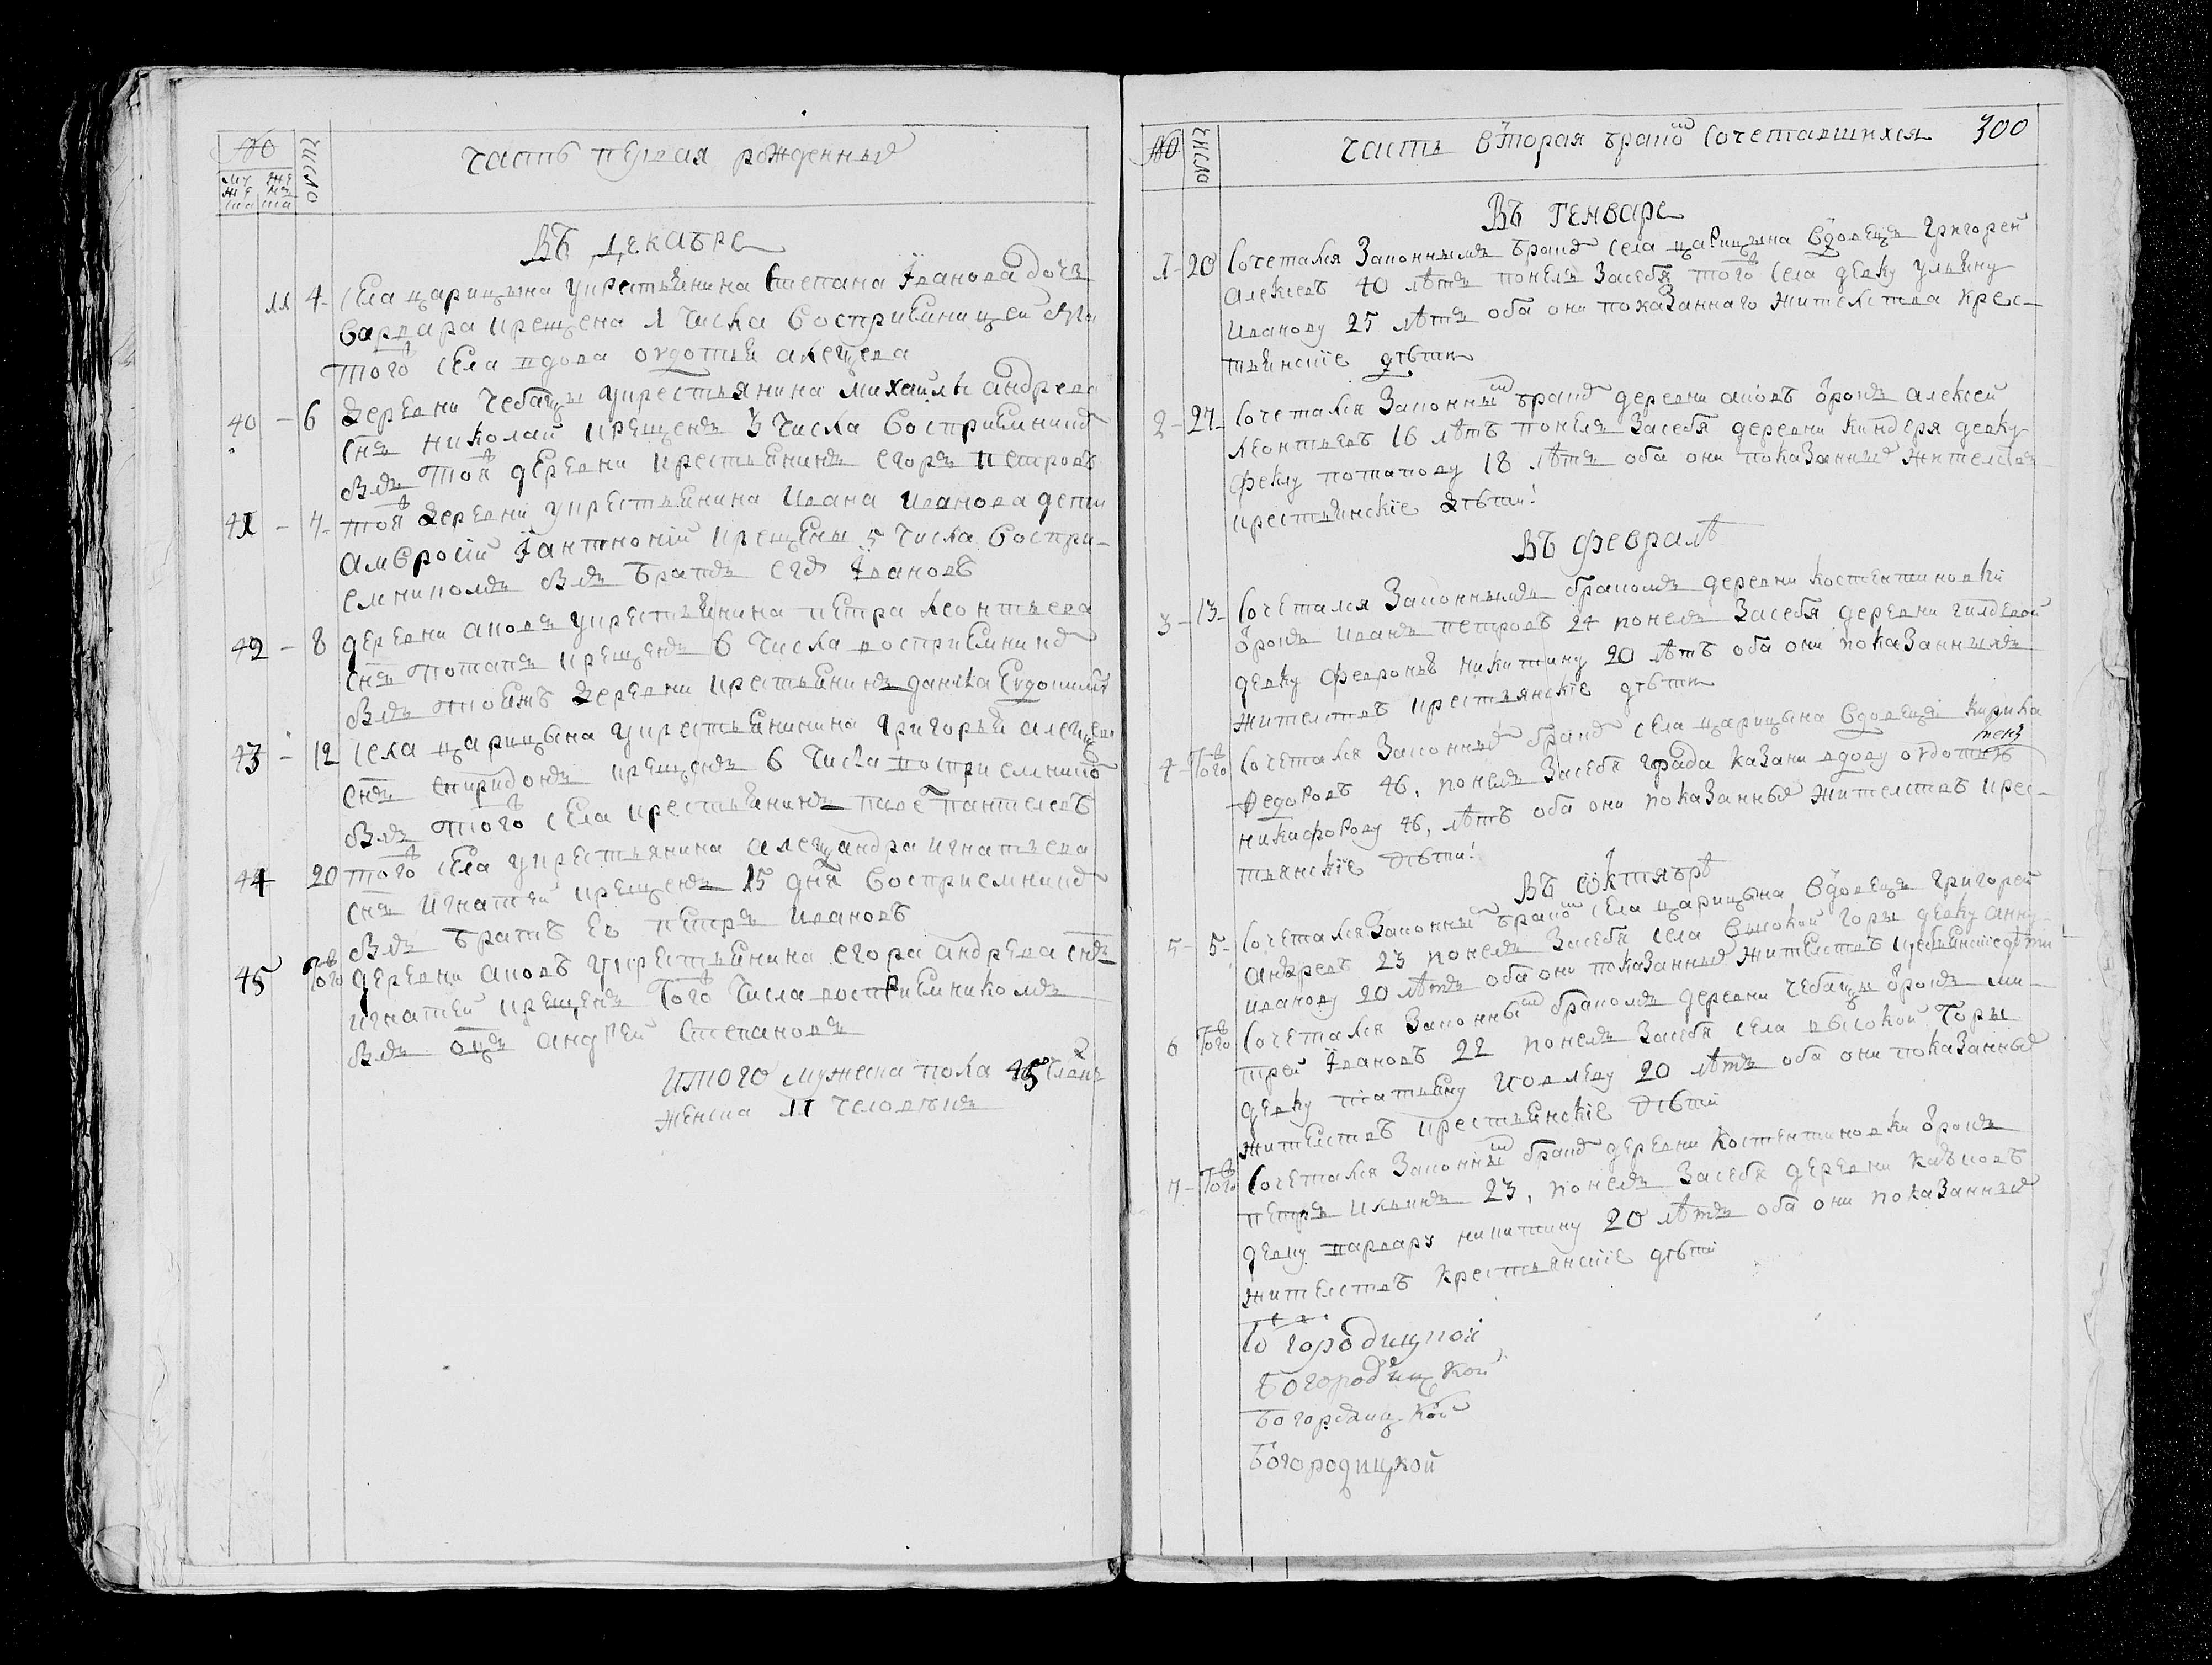 № число Часть первая рожденныхъ
му же
же нз
ска ска
Въ декабре
11 4 Села царицына у крестьянина Степана Иванова дочь
варвара крещена 1 числа восприемницей была
того села вдова овдотья алеѯева
40 - 6 деревни Чебаѯы у крестьянина михаилы андреева
снъ николай крещенъ 3 числа восприемникъ
былъ той деревни крестьянинъ егоръ петровъ
41 - 7 той деревни у крестьянина ивана иванова дети
амвросий і антноний крещены 5 числа воспри-
емникомъ былъ братъ его Ивановъ
42 - 8 деревни аковъ у крестьянина петра леонтьева
снъ потапъ крещенъ 6 числа восприемникъ
былъ тоежъ деревни крестьянинъ данила Евдокимовъ
43 - 12 Села царицына у крестьянинина григорья алеѯеева
снъ спиридонъ крещенъ 6 числа восприемникъ
былъ того села крестьянинъ павелъ пантелеевъ
44 20 того села у крестьянина алеѯандра игнатьева
снъ игнатей крещенъ 15 дня восприемникъ
былъ братъ ев петръ ивановъ
45 того деревни аковъ у крестьянина егора андреева снъ
игнатей крещенъ того числа восприемникомъ
былъ оцъ андрей степановъ
итого мужеска пола 45
женска 11 человекъ
№ число часть вторая бракомъ сочетавшихся 300
Въ генваре
1 - 20 Сочетался законнымъ бракомъ села царицына вдовецъ григорей
алексеевъ 40 лѣтъ понелъ засебя того села девку ульяну
иванову 25 лѣтъ оба они показаннаго жителства крес-
тьянские дѣти
2 - 27 Сочетался законнымъ бракомъ деревни аковъ отрокъ алексей
леонтьевъ 16 лѣтъ понелъ засебя деревни киндеря девку
феклу потапову 18 лѣтъ оба они показанныхъ жителствъ
крестьянские дѣти
Въ февралѣ
3 - 13 Сочетался законнымъ бракомъ деревни костентиновки
отрокъ иванъ петровъ 24 понелъ засебя деревни гилдеевой
девку февронью никитину 20 лѣтъ оба они показанныхъ
жителствъ крестьянские дѣти
4 - того Сочетался законнымъ бракомъ села царицына вдовецъ кирила
федоровъ 46, понелъ засебя града казани вдову овдотью
никифорову 46, лѣтъ оба они показанныхъ жителствъ крес-
тьянские дѣти
Въ октябрѣ
5 - 5 Сочетался законнымъ бракомъ села царицына вдовецъ григорей
андреевъ 23 понелъ засебя села высокой горы девку анну
иванову 20 лѣтъ оба они показанныхъ жителствъ крестьянские дѣти
6 того Сочетался законнымъ бракомъ деревни Чебаѯы отрокъ ми-
трей Ивановъ 22 понелъ засебя села высокой горы
девку татьяну иовлеву 20 лѣтъ оба они показанныхъ
жителствъ крестьянские дѣти
7 - того Сочетался законнымъ бракомъ деревни костентиновки отрокъ
петръ ильинъ 23, понелъ засебя деревни
девку варвару никитину 20 лѣтъ оба они показанныхъ
жителствъ крестьянские дѣти
богородицкой
Богородицкой
Богородицкой
Богородицкой